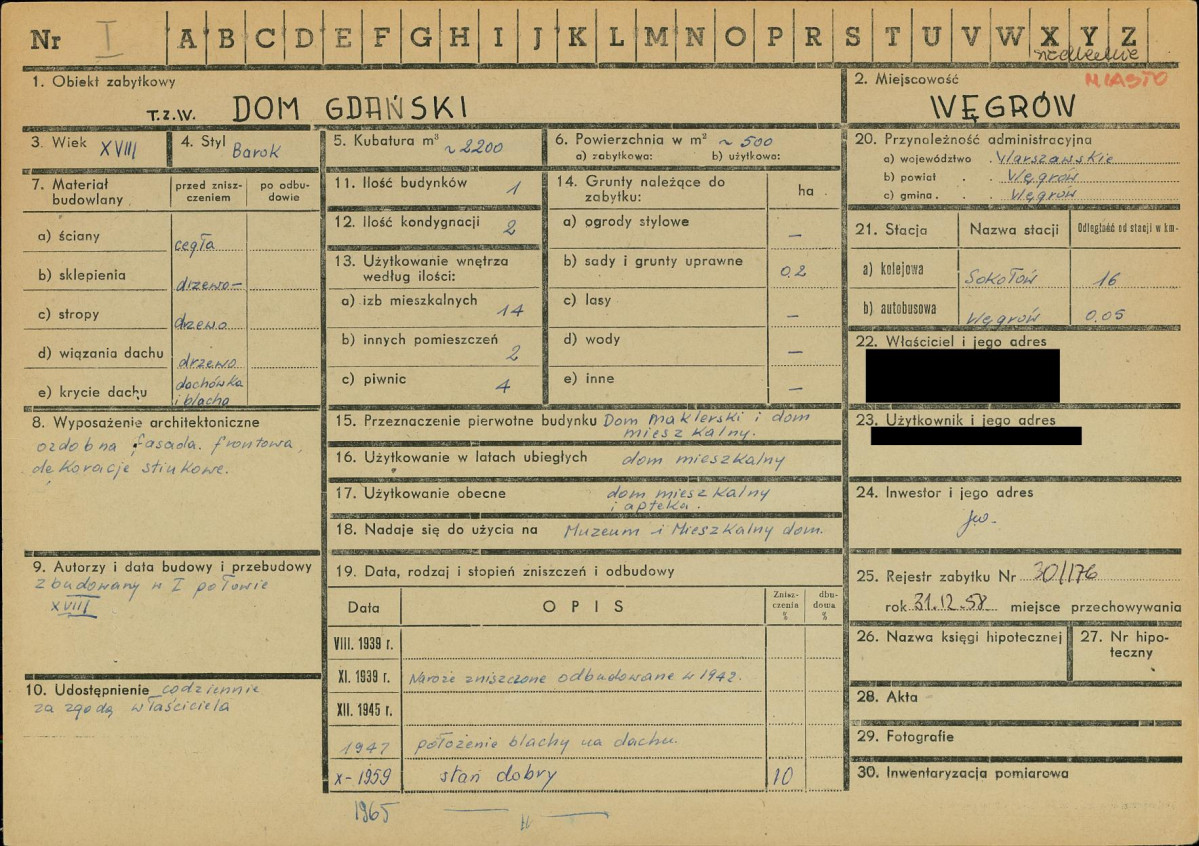 Nr I A B C D E F G H I J K L M N O P R S T U V W X Y Z
1. Obiekt zabytkowy
T.Z.W. DOM GDAŃSKI
2. Miejscowość MIASTO
WĘGRÓW
3. Wiek XVIII
4. Styl Barok
5. Kubatura m³ ~ 2200
6. Powierzchnia w m² ~ 500
a) zabytkowa: b) użytkowa:
7. Materiał budowlany
przed znisz-
czeniem
po odbu-
dowie
a) ściany cegła
b) sklepienia drzewo –
c) stropy drzewo
d) wiązania dachu drzewo
e) krycie dachu dachówka
i blacha
8. Wyposażenie architektoniczne
ozdobna fasada frontowa,
dekoracje stiukowe.
9. Autorzy i data budowy i przebudowy
zbudowany w I połowie
XVIII
10. Udostępnienie codziennie
za zgodą właściciela
11. Ilość budynków 1
12. Ilość kondygnacji 2
13. Użytkowanie wnętrza
według ilości:
a) izb mieszkalnych 14
b) innych pomieszczeń 2
c) piwnic 4
14. Grunty należące do
zabytku:
ha
a) ogrody stylowe –
b) sady i grunty uprawne 0,2
c) lasy –
d) wody –
e) inne –
15. Przeznaczenie pierwotne budynku Dom maklerski i dom
mieszkalny.
16. Użytkowanie w latach ubiegłych dom mieszkalny
17. Użytkowanie obecne dom mieszkalny
i apteka.
18. Nadaje się do użycia na Muzeum i Mieszkalny dom.
19. Data, rodzaj i stopień zniszczeń i odbudowy
Data OPIS
Znisz-
czenia
%
dbu-
dowa
%
VIII. 1939 r.
XI. 1939 r. Naroże zniszczone odbudowane w 1942.
XII. 1945 r.
1947 położenie blachy na dachu.
X-1959 stan dobry 10
1965 — " —
20. Przynależność administracyjna
a) województwo Warszawskie
b) powiat Węgrów
c) gmina Węgrów
21. Stacja Nazwa stacji Odległość od stacji w km-
a) kolejowa Sokołów 16
b) autobusowa Węgrów 0,05
22. Właściciel i jego adres
23. Użytkownik i jego adres
24. Inwestor i jego adres
jw.
25. Rejestr zabytku Nr 30/176
rok 31.12.58 miejsce przechowywania
26. Nazwa księgi hipotecznej
27. Nr hipo-
teczny
28. Akta
29. Fotografie
30. Inwentaryzacja pomiarowa